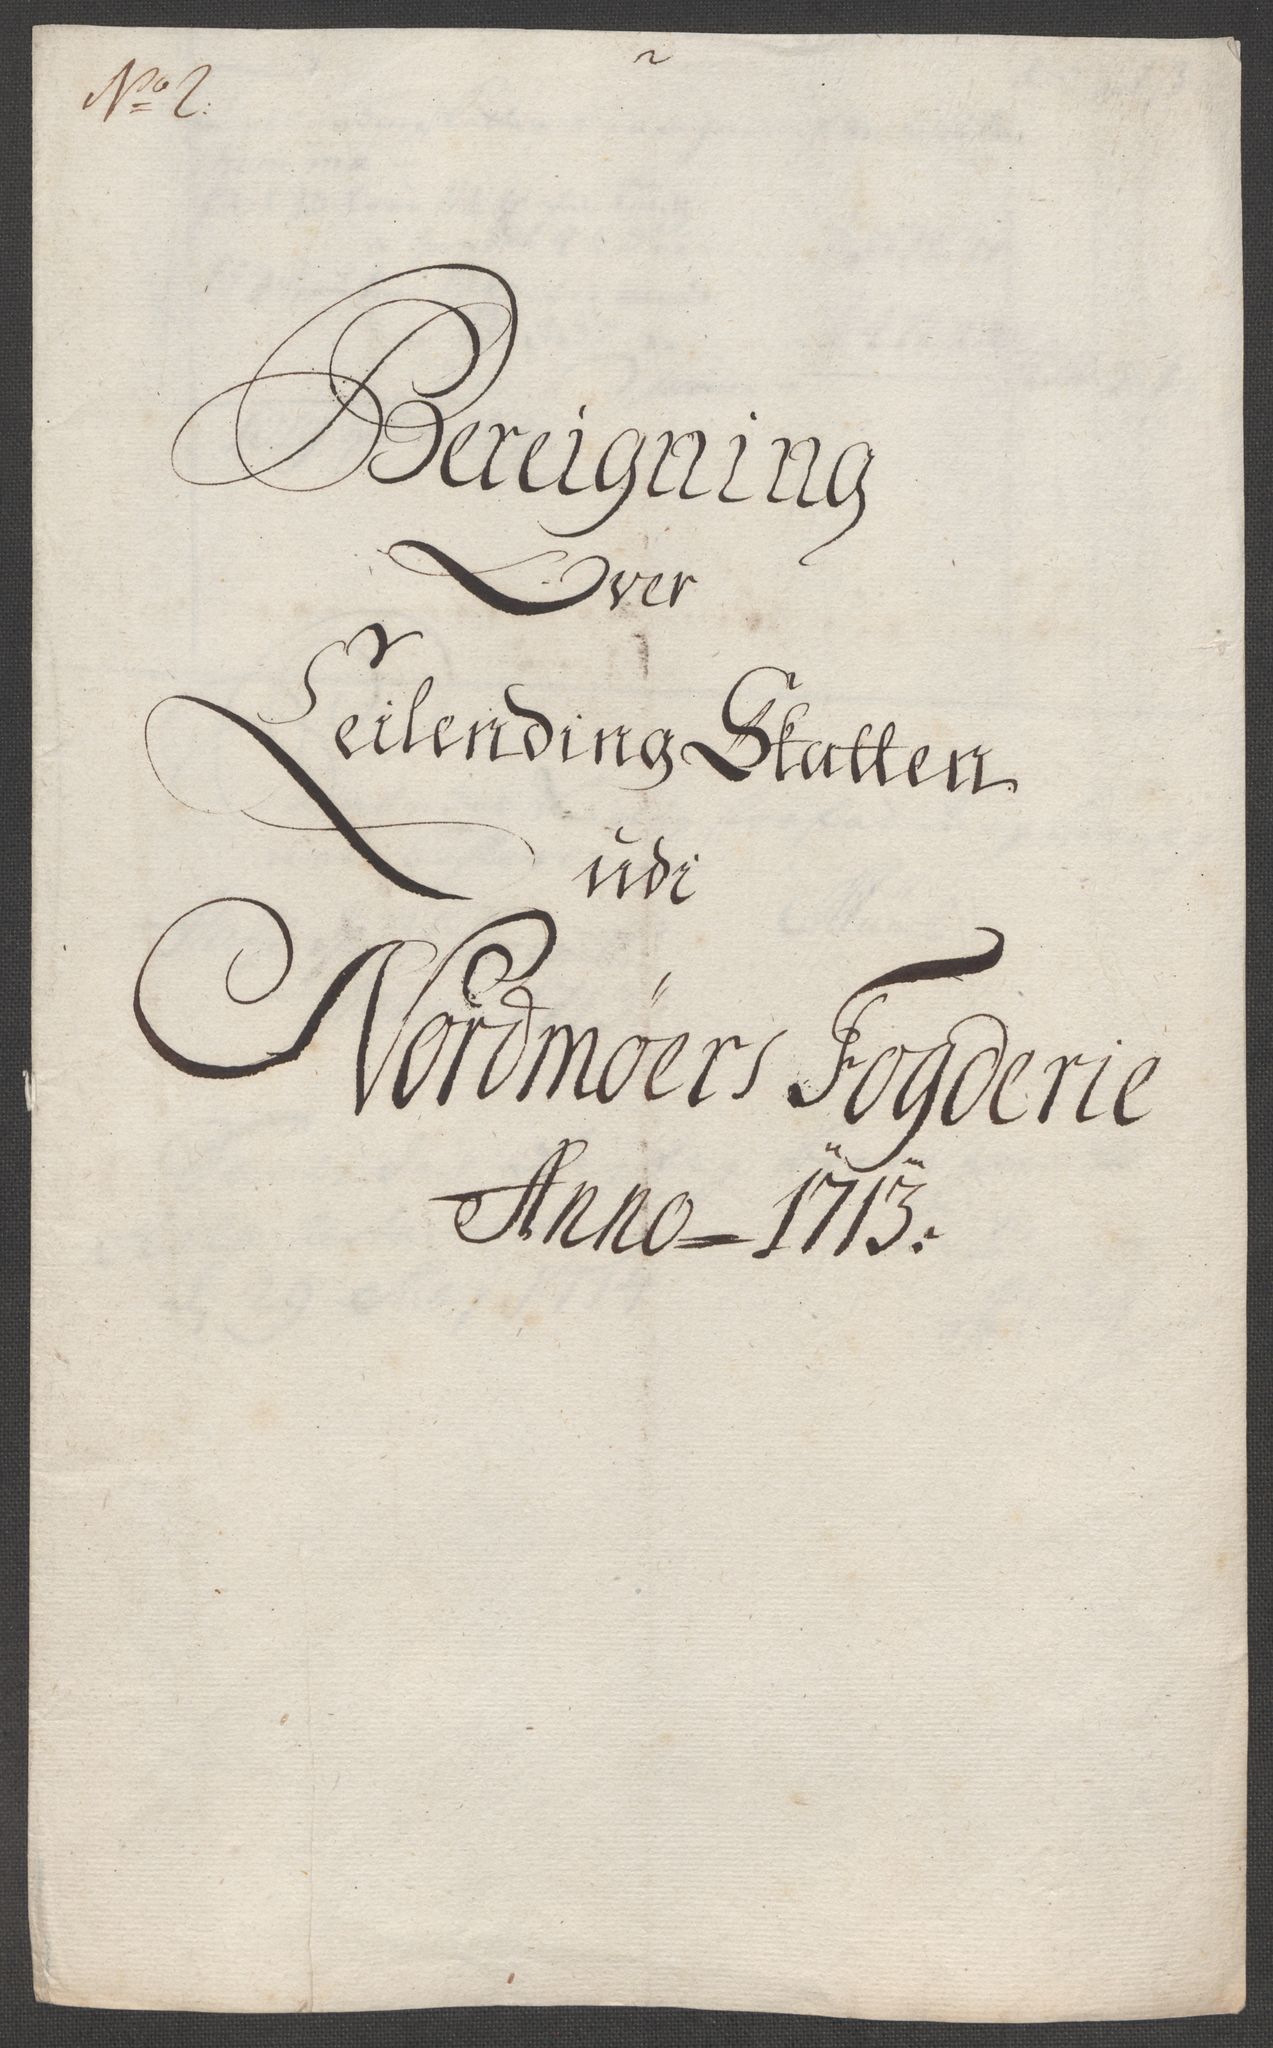 No 2.
Bereigning
Over
Leilending Skatten
udi
Nordmöers Fogderie
Anno 1713.